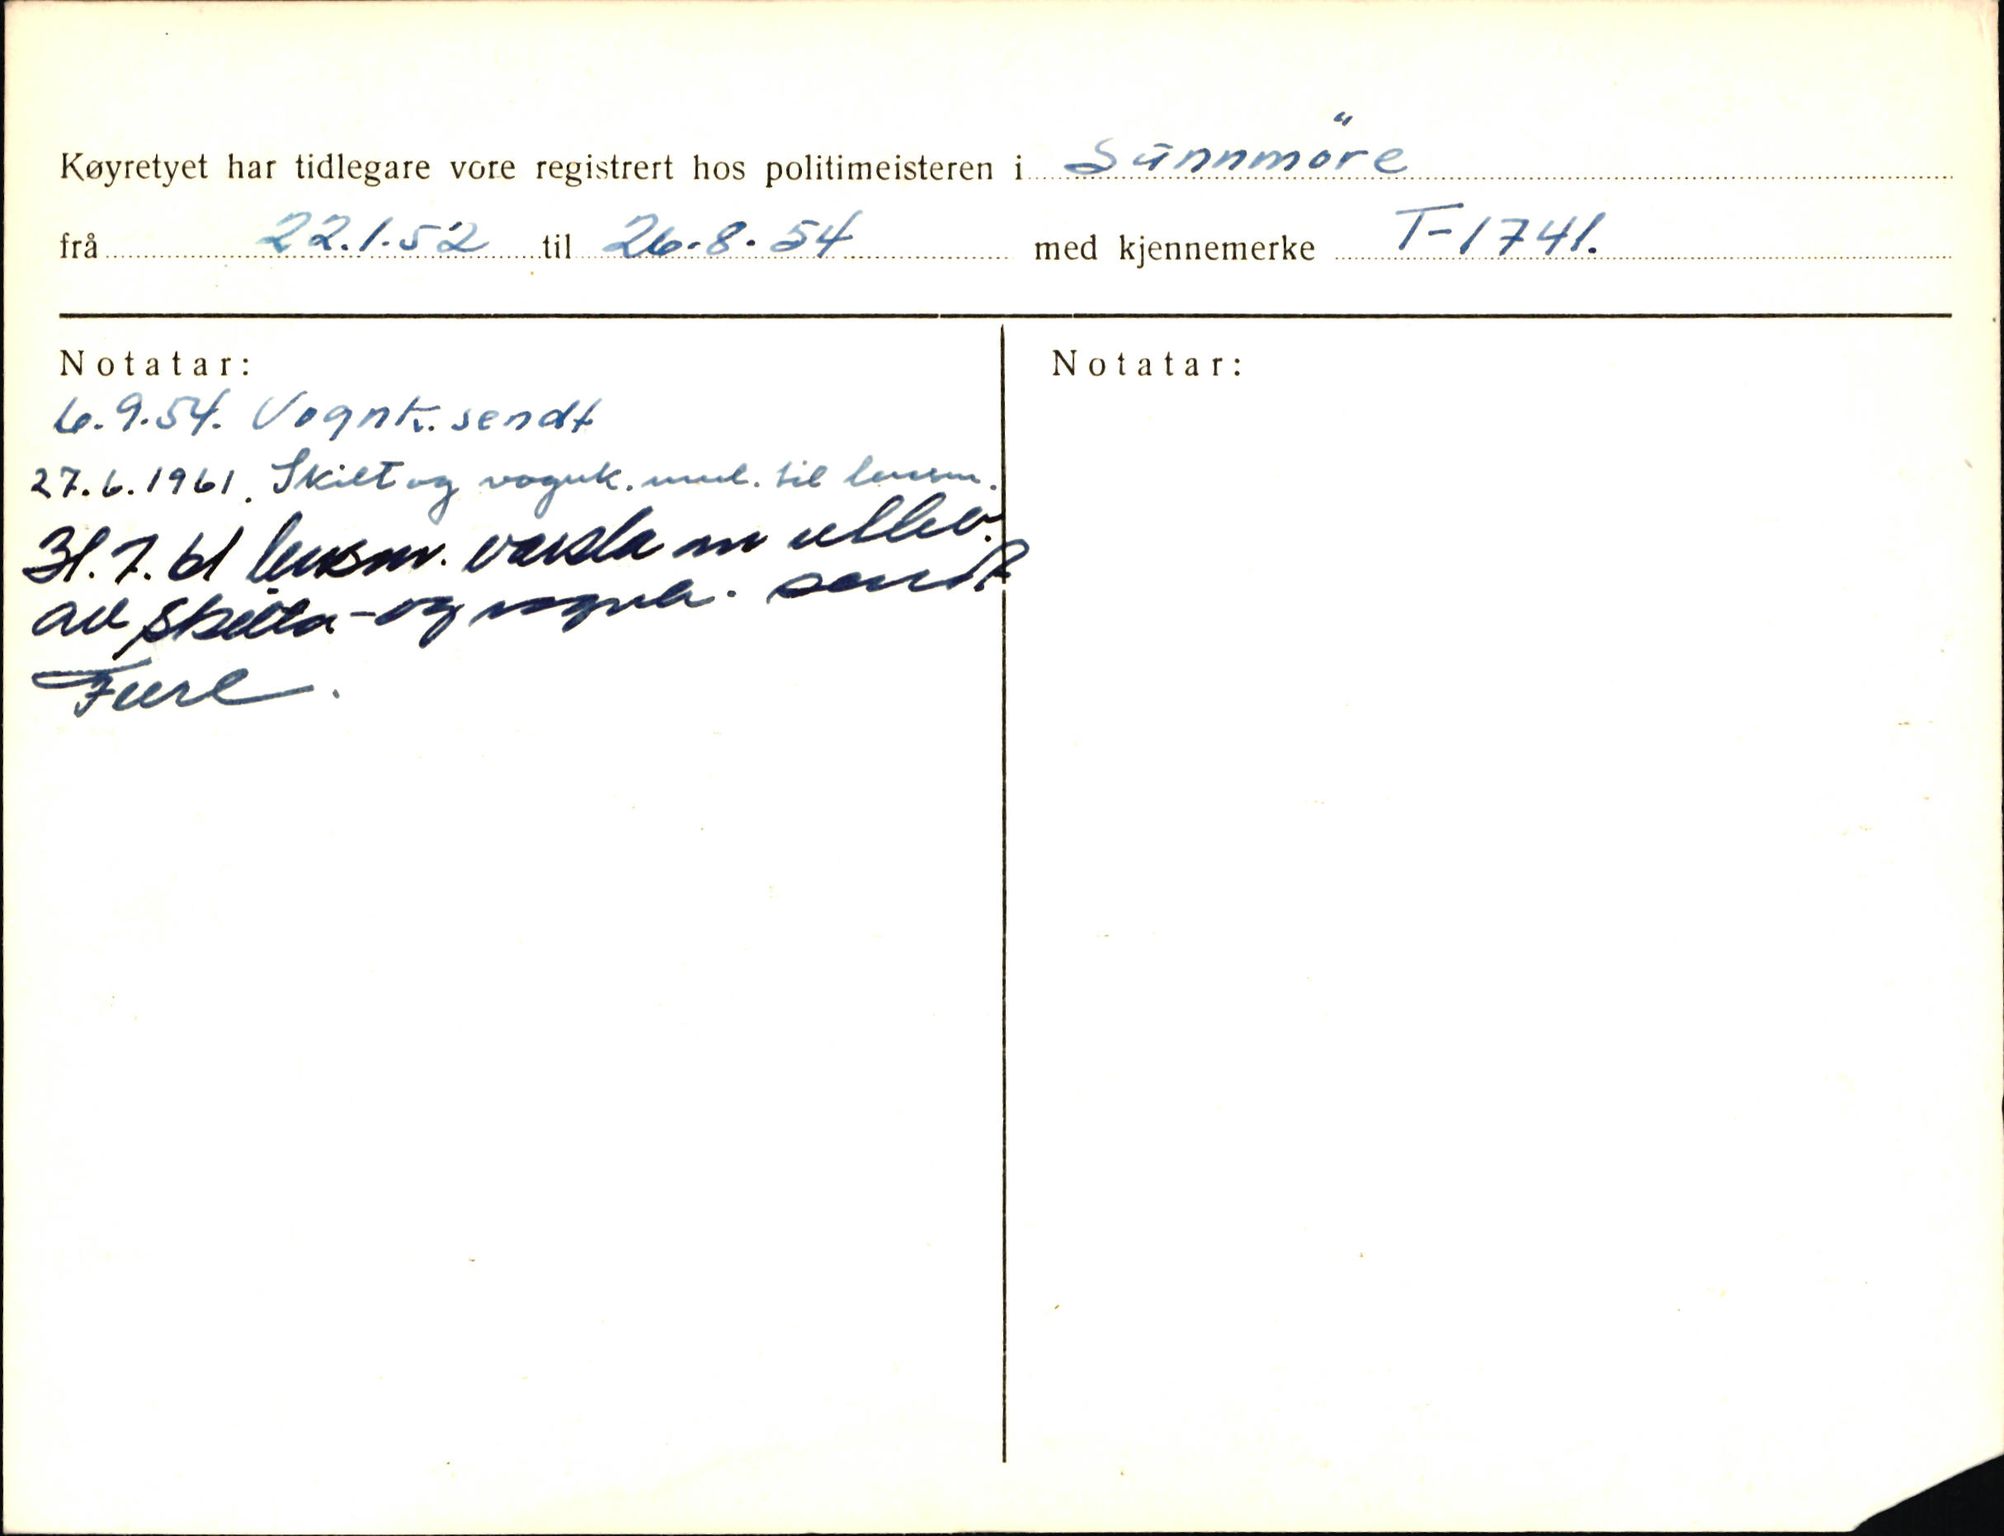 Køyretyet har tidlegare vore registrert hos politimeisteren i Sünnmöre
frå 22.1.52 til 26.8.54 med kjennemerke T-1741.
Notatar:
Notatar:
6.9.54. Vognk. sendt
27.6.1961. Skilt og vognk. innl. til lensm.
31.7.61 lensm. varsla om utlev.
av skilta - og vognk. sendt
Fure.